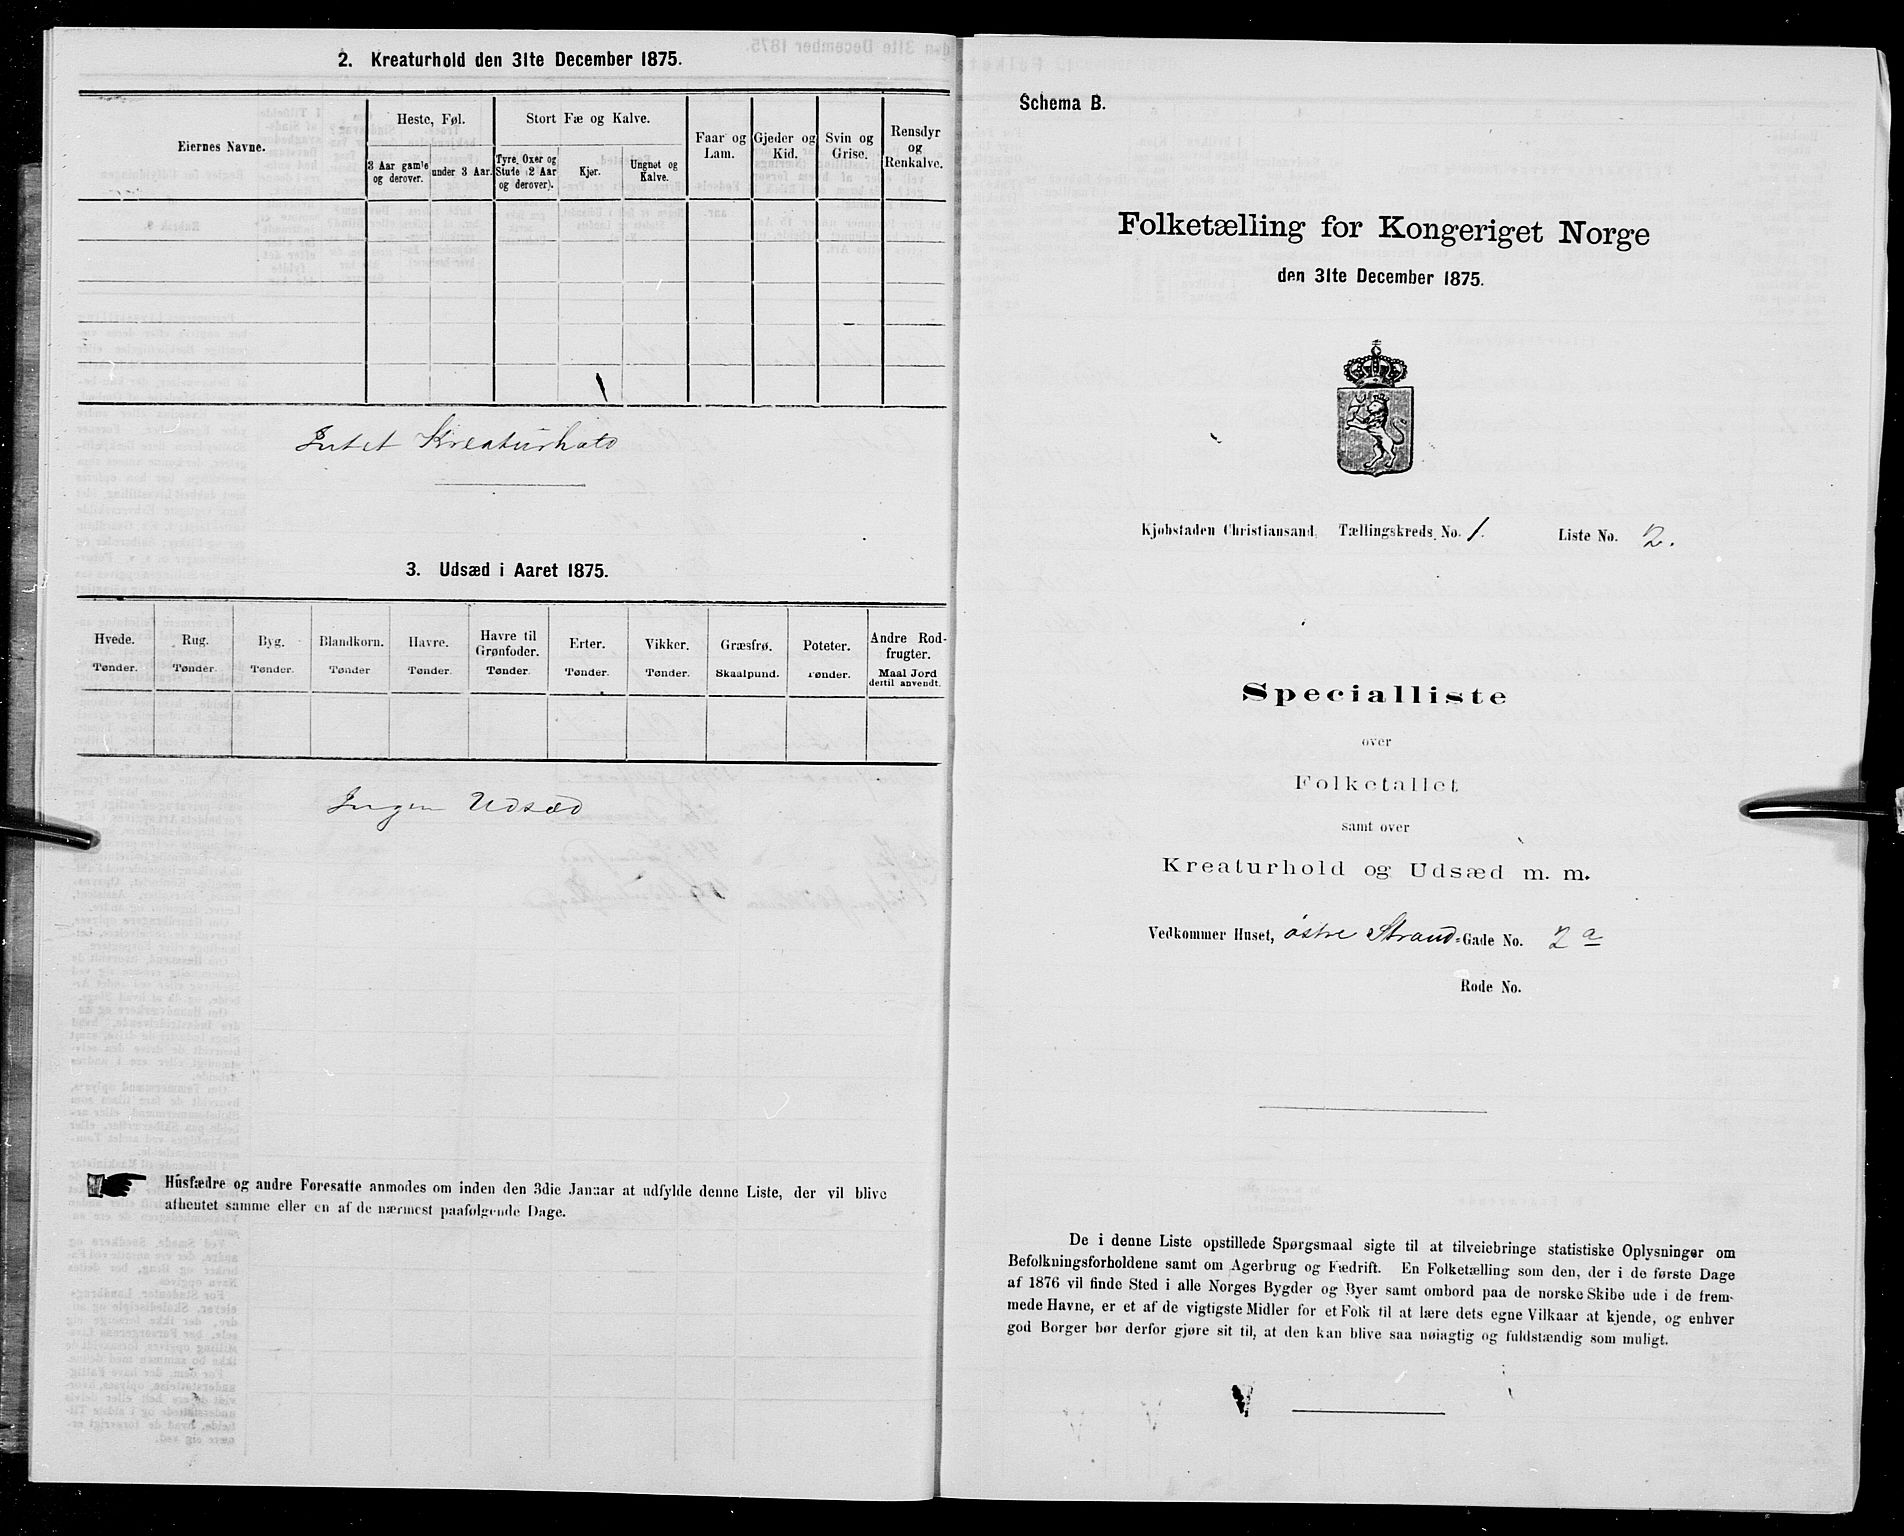 2. Kreaturhold den 31te December 1875.
Eiernes Navne.
Heste, Føl.
Stort Fæ og Kalve.
Faar og
Lam.
Gjeder og
Kid.
Svin og
Grise.
Rensdyr
og
Renkalve.
3 Aar gamle
og derover.
under 3 Aar.
Tyre, Oxer og
Stude (2 Aar
og derover).
Kjør.
Ungnøt og
Kalve.
Intet Kreaturhold
3. Udsæd i Aaret 1875.
Hvede.
Rug.
Byg.
Blandkorn.
Havre.
Havre til
Grønfoder.
Erter.
Vikker.
Græsfrø.
Poteter.
Andre Rod-
frugter.
Tønder.
Tønder.
Tønder.
Tønder
Tønder.
Tønder.
Tønder.
Tønder.
Skaalpund.
Tønder.
Maal Jord
dertil anvendt.
Ingen Udsæd
Husfædre og andre Foresatte anmodes om inden den 3die Januar at udfylde denne Liste, der vil blive
afhentet samme eller en af de nærmest paafølgende Dage.
Schema B.
Folketælling for Kongeriget Norge
den 31te December 1875.
Kjøbstaden Christiansand. Tællingskreds No. 1. Liste No. 2.
Specialliste
over
Folketallet
samt over
Kreaturhold og Udsæd m. m.
Vedkommer Huset, østre Strand-Gade No. 2 a
Rode No.
De i denne Liste opstillede Spørgsmaal sigte til at tilveiebringe statistiske Oplysninger om
Befolkningsforholdene samt om Agerbrug og Fædrift. En Folketælling som den, der i de første Dage
af 1876 vil finde Sted i alle Norges Bygder og Byer samt ombord paa de norske Skibe ude i de frem-
mede Havne, er et af de vigtigste Midler for et Folk til at lære dets egne Vilkaar at kjende, og enhver
god Borger bør derfor gjøre sit til, at den kan blive saa nøiagtig og fuldstændig som muligt.